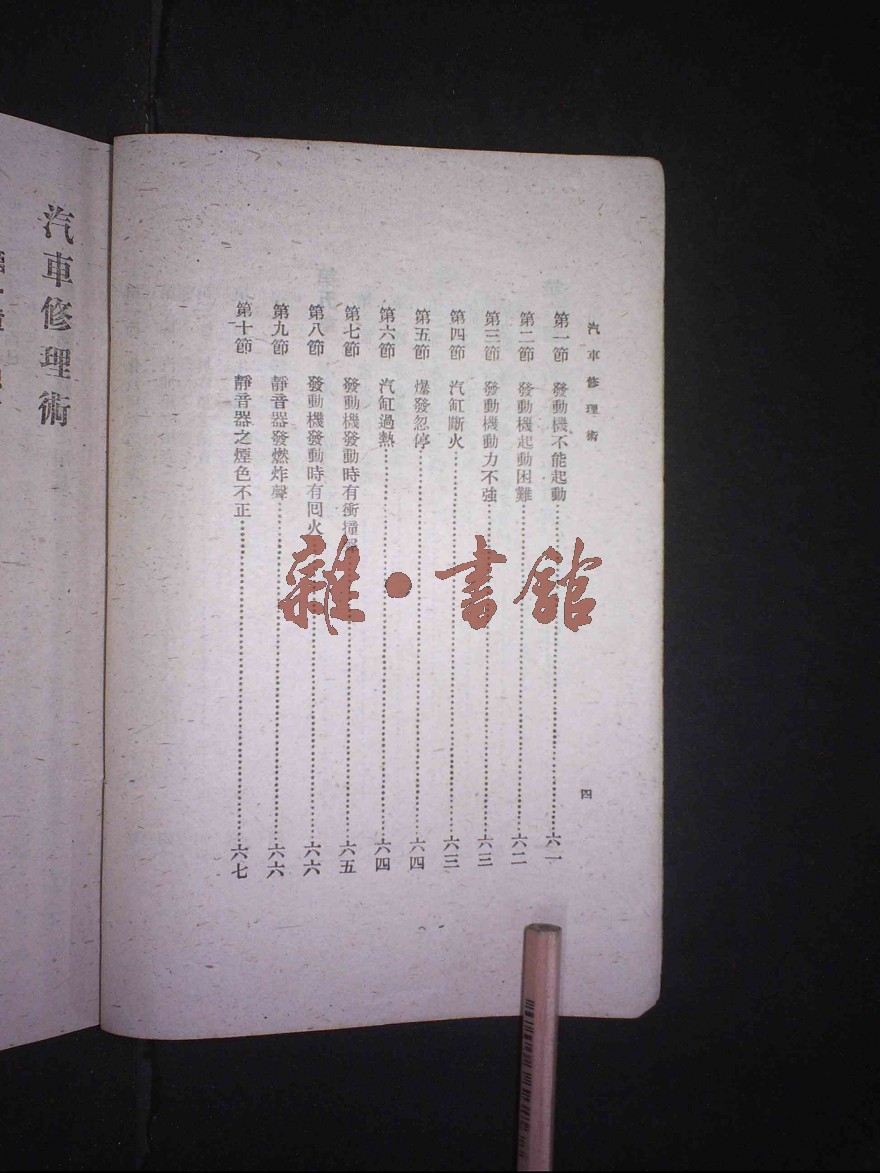 汽車修理術
四
第一節 發動機不能起動……六一
第二節 發動機起動困難……六二
第三節 發動機動力不強……六三
第四節 汽缸斷火……六三
第五節 爆發忽停……六四
第六節 汽缸過熱……六四
第七節 發動機發動時有衝撞……六五
第八節 發動機發動時有囘火……六六
第九節 靜音器發燃炸聲……六六
第十節 靜音器之煙色不正……六七
雜·書館
汽車修理術